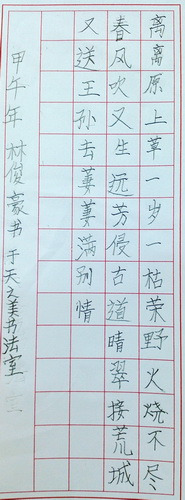 离离原上草一岁一枯荣野火烧不尽
春风吹又生远芳侵古道晴翠接荒城
又送王孙去萋萋满别情
甲午年林俊豪书于天之美书法室